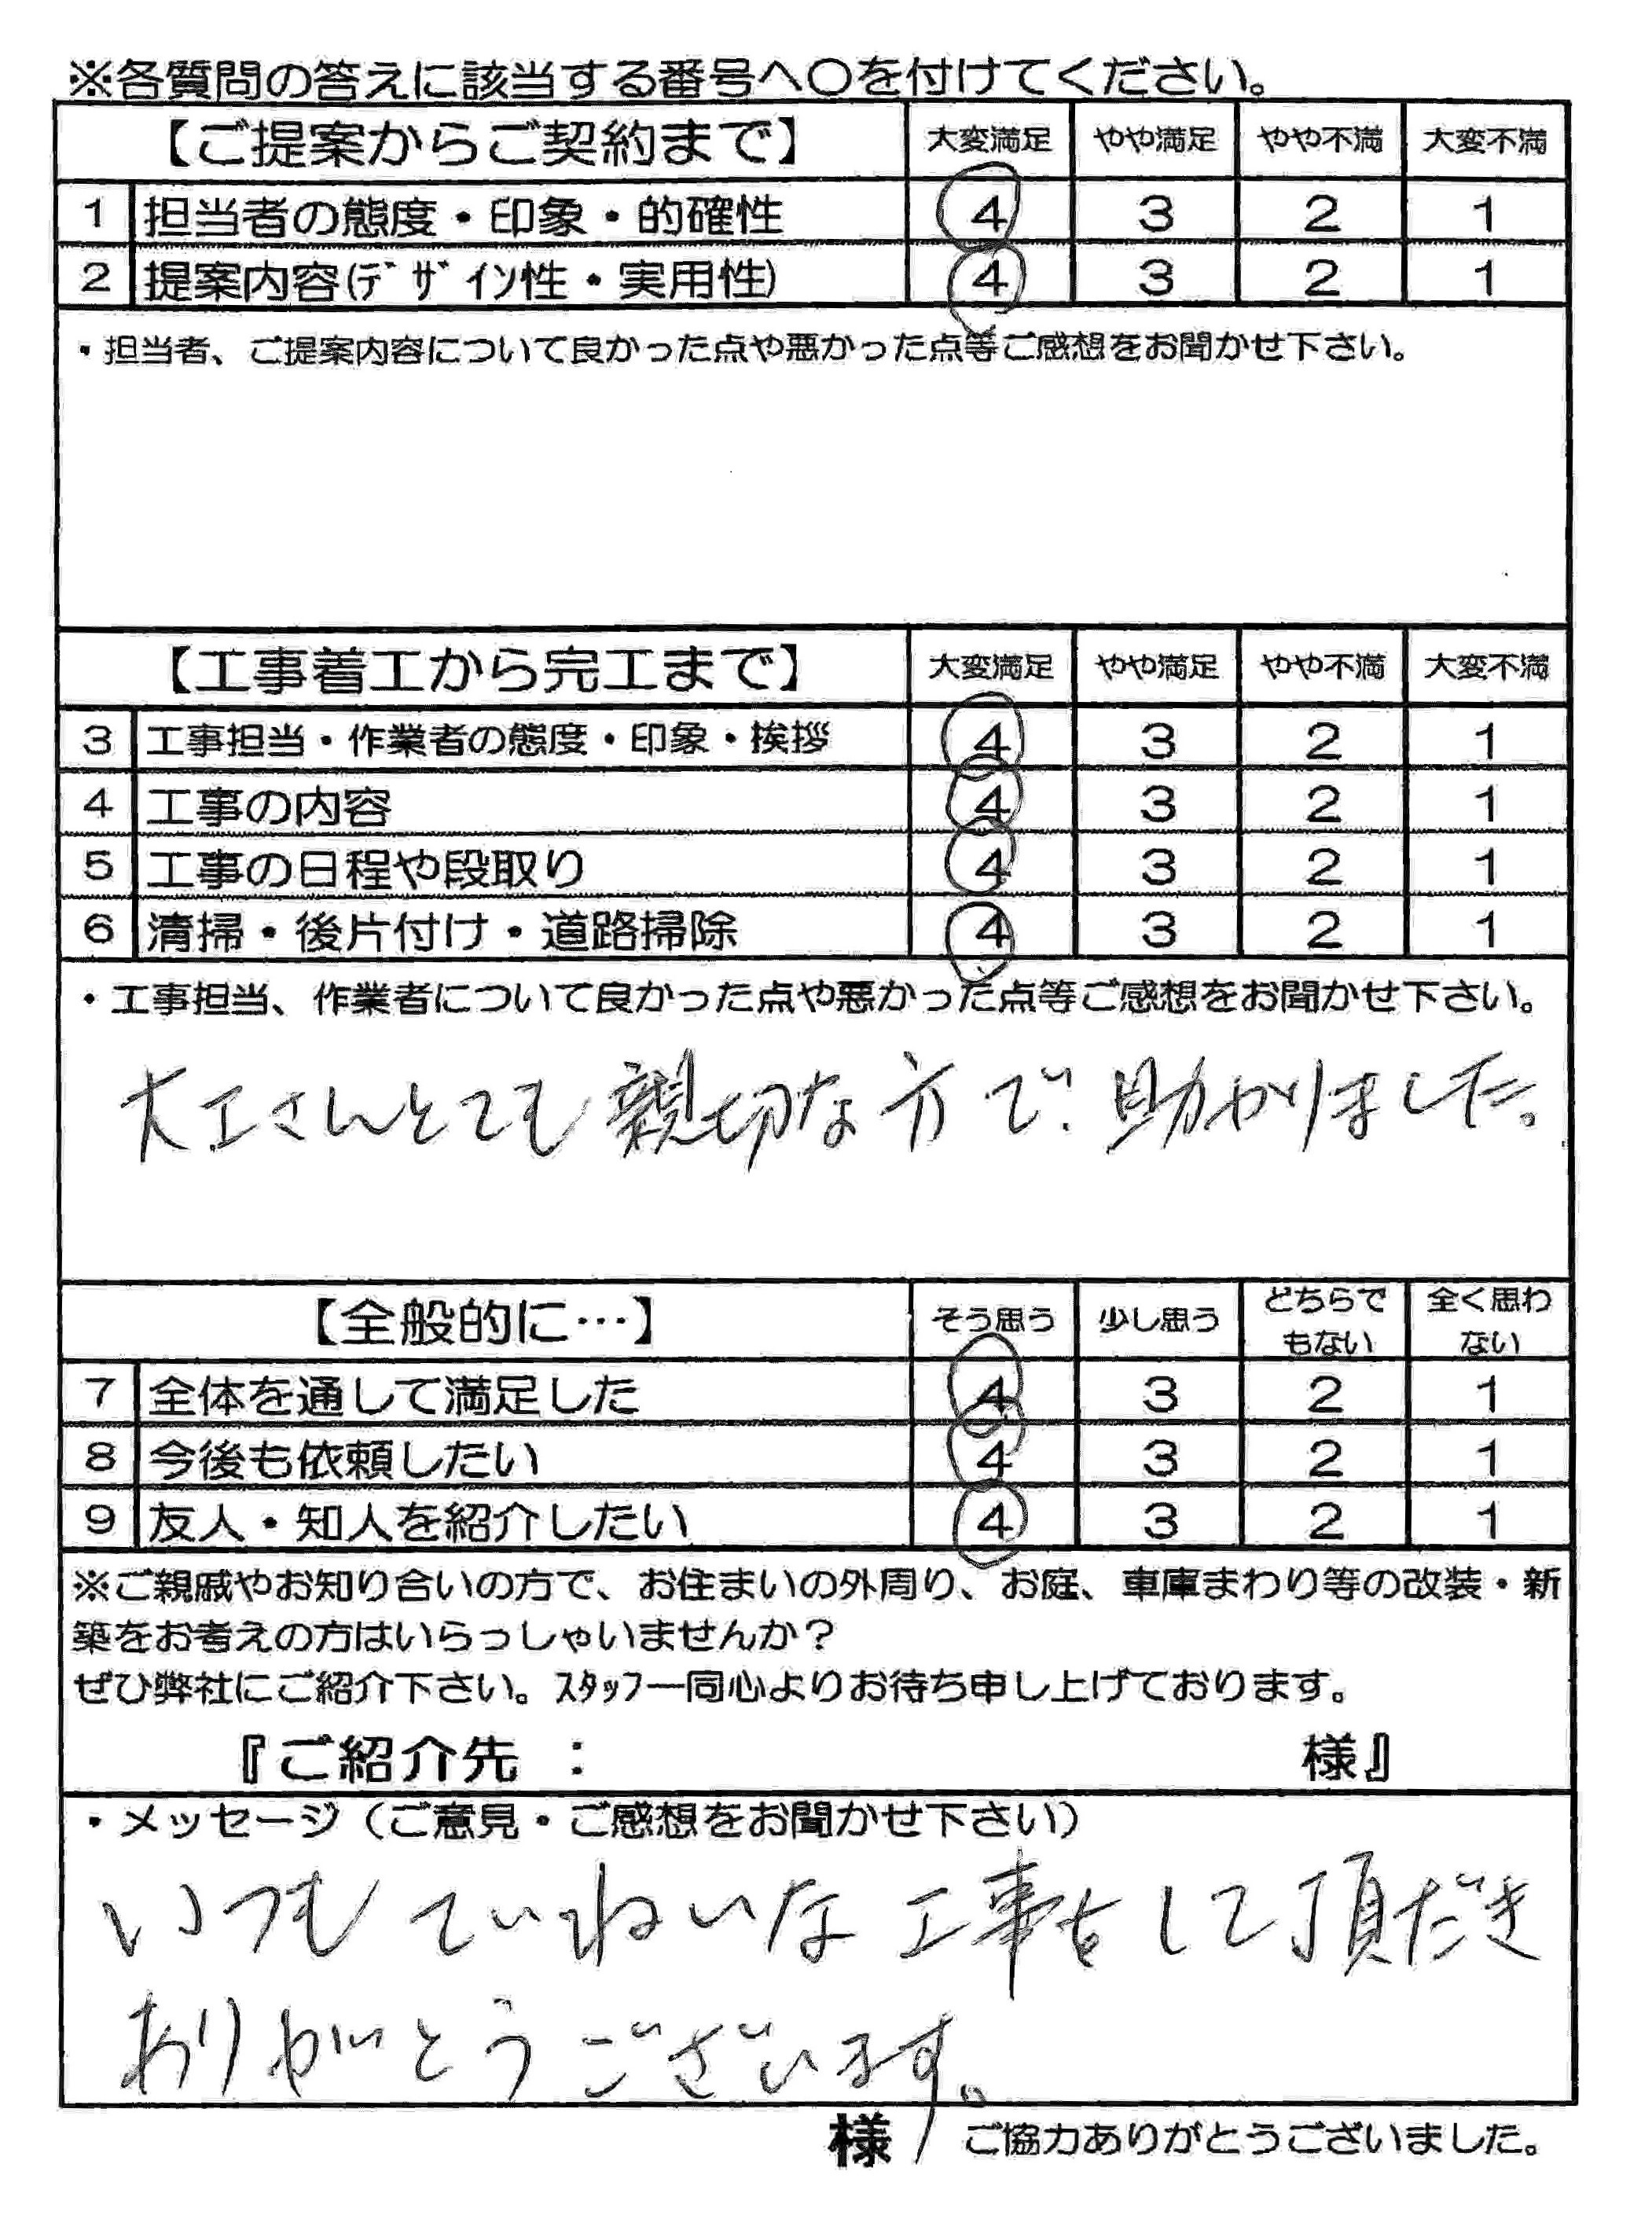 ※各質問の答えに該当する番号へ○を付けてください。
【ご提案からご契約まで】 大変満足 やや満足 やや不満 大変不満
1 担当者の態度・印象・的確性 4 3 2 1
2 提案内容(ﾃﾞｻﾞｲﾝ性・実用性) 4 3 2 1
・担当者、ご提案内容について良かった点や悪かった点等ご感想をお聞かせ下さい。
【工事着工から完工まで】 大変満足 やや満足 やや不満 大変不満
3 工事担当・作業者の態度・印象・挨拶 4 3 2 1
4 工事の内容 4 3 2 1
5 工事の日程や段取り 4 3 2 1
6 清掃・後片付け・道路掃除 4 3 2 1
・工事担当、作業者について良かった点や悪かった点等ご感想をお聞かせ下さい。
大工さんとても親切な方で、助かりました。
【全般的に…】 そう思う 少し思う どちらでもない 全く思わない
7 全体を通して満足した 4 3 2 1
8 今後も依頼したい 4 3 2 1
9 友人・知人を紹介したい 4 3 2 1
※ご親戚やお知り合いの方で、お住まいの外周り、お庭、車庫まわり等の改装・新
築をお考えの方はいらっしゃいませんか？
ぜひ弊社にご紹介下さい。ｽﾀｯﾌ一同心よりお待ち申し上げております。
『ご紹介先 ： 様』
・メッセージ（ご意見・ご感想をお聞かせ下さい）
いつもていねいな工事をして頂だき
ありがとうございます。
様 ご協力ありがとうございました。